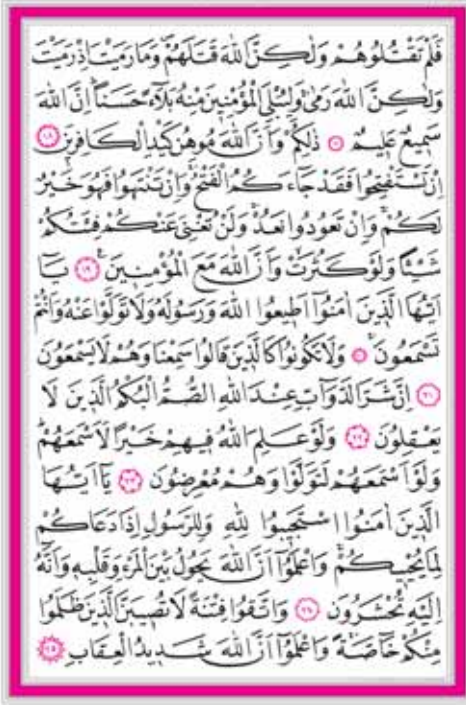 فَلَمْ تَقْتُلُوهُمْ وَلٰكِنَّ اللّٰهَ قَتَلَهُمْ وَمَا رَمَيْتَ اِذْ رَمَيْتَ
وَلٰكِنَّ اللّٰهَ رَمٰى وَلِيُبْلِىَ الْمُؤْمِن۪ينَ مِنْهُ بَلَٓاءً حَسَنًا اِنَّ اللّٰهَ
سَم۪يعٌ عَل۪يمٌ ذٰلِكُمْ وَاَنَّ اللّٰهَ مُوهِنُ كَيْدِ الْكَافِر۪ينَ ١٨
اِنْ تَسْتَفْتِحُوا فَقَدْ جَٓاءَكُمُ الْفَتْحُ وَاِنْ تَنْتَهُوا فَهُوَ خَيْرٌ
لَكُمْ وَاِنْ تَعُودُوا نَعُدْ وَلَنْ تُغْنِىَ عَنْكُمْ فِئَتُكُمْ
شَيْـًٔا وَلَوْ كَثُرَتْ وَاَنَّ اللّٰهَ مَعَ الْمُؤْمِن۪ينَ ١٩ يَٓا
اَيُّهَا الَّذ۪ينَ اٰمَنُٓوا اَط۪يعُوا اللّٰهَ وَرَسُولَهُ وَلَا تَوَلَّوْا عَنْهُ وَاَنْتُمْ
تَسْمَعُونَ وَلَا تَكُونُوا كَالَّذ۪ينَ قَالُوا سَمِعْنَا وَهُمْ لَا يَسْمَعُونَ
٢١ اِنَّ شَرَّ الدَّوَٓابِّ عِنْدَ اللّٰهِ الصُّمُّ الْبُكْمُ الَّذ۪ينَ لَا
يَعْقِلُونَ ٢٢ وَلَوْ عَلِمَ اللّٰهُ ف۪يهِمْ خَيْرًا لَاَسْمَعَهُمْ
وَلَوْ اَسْمَعَهُمْ لَتَوَلَّوْا وَهُمْ مُعْرِضُونَ ٢٣ يَٓا اَيُّهَا
الَّذ۪ينَ اٰمَنُوا اسْتَج۪يبُوا لِلّٰهِ وَلِلرَّسُولِ اِذَا دَعَاكُمْ
لِمَا يُحْي۪يكُمْ وَاعْلَمُٓوا اَنَّ اللّٰهَ يَحُولُ بَيْنَ الْمَرْءِ وَقَلْبِه۪ وَاَنَّهُٓ
اِلَيْهِ تُحْشَرُونَ ٢٤ وَاتَّقُوا فِتْنَةً لَا تُص۪يبَنَّ الَّذ۪ينَ ظَلَمُوا
مِنْكُمْ خَٓاصَّةً وَاعْلَمُٓوا اَنَّ اللّٰهَ شَد۪يدُ الْعِقَابِ ٢٥